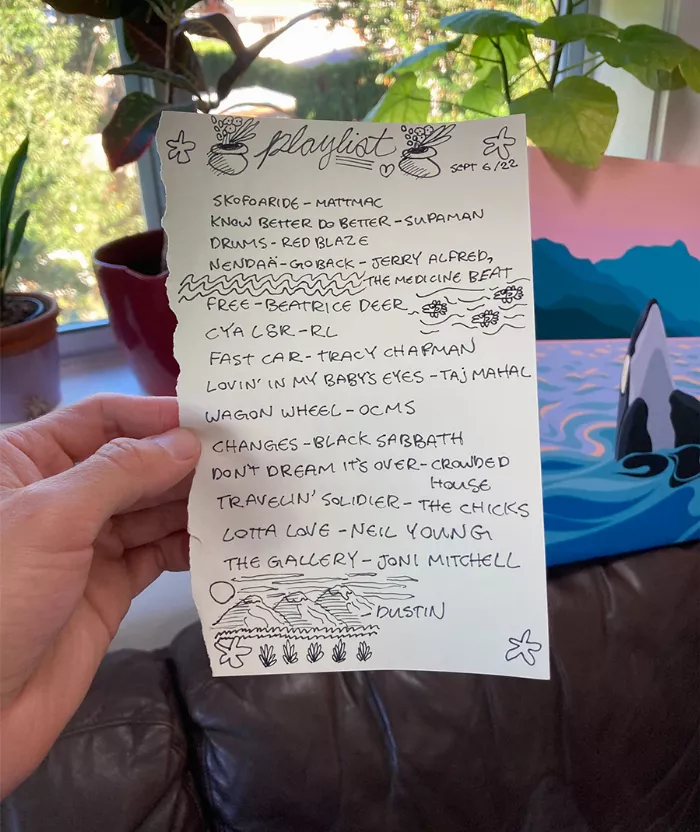 playlist
SEPT 6/22
SKOFOARIDE - MATTMAC
KNOW BETTER DO BETTER - SUPAMAN
DRUMS - RED BLAZE
NENDAÄ - GO BACK - JERRY ALFRED,
THE MEDICINE BEAT
FREE - BEATRICE DEER
CYA L8R - RL
FAST CAR - TRACY CHAPMAN
LOVIN' IN MY BABY'S EYES - TAJ MAHAL
WAGON WHEEL - OCMS
CHANGES - BLACK SABBATH
DON'T DREAM IT'S OVER - CROWDED
HOUSE
TRAVELIN' SOLIDIER - THE CHICKS
LOTTA LOVE - NEIL YOUNG
THE GALLERY - JONI MITCHELL
DUSTIN